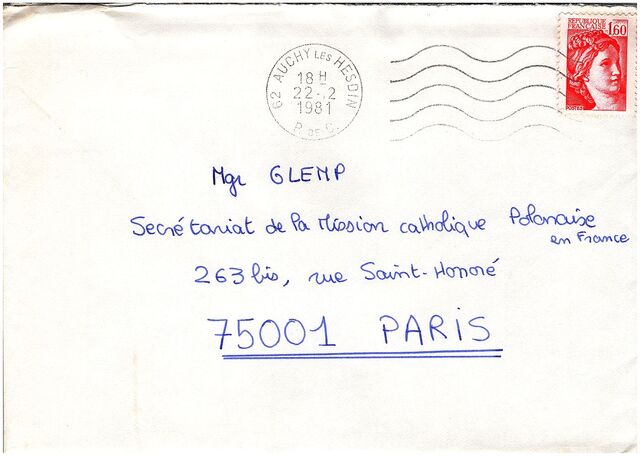 RÉPUBLIQUE
FRANÇAISE 1,60
62 AUCHY LES HESDIN
18 H
22-12
1981
P. DE C.
Mgr GLEMP
Secrétariat de la Mission catholique Polonaise
en France
263 bis, rue Saint-Honoré
75001 PARIS